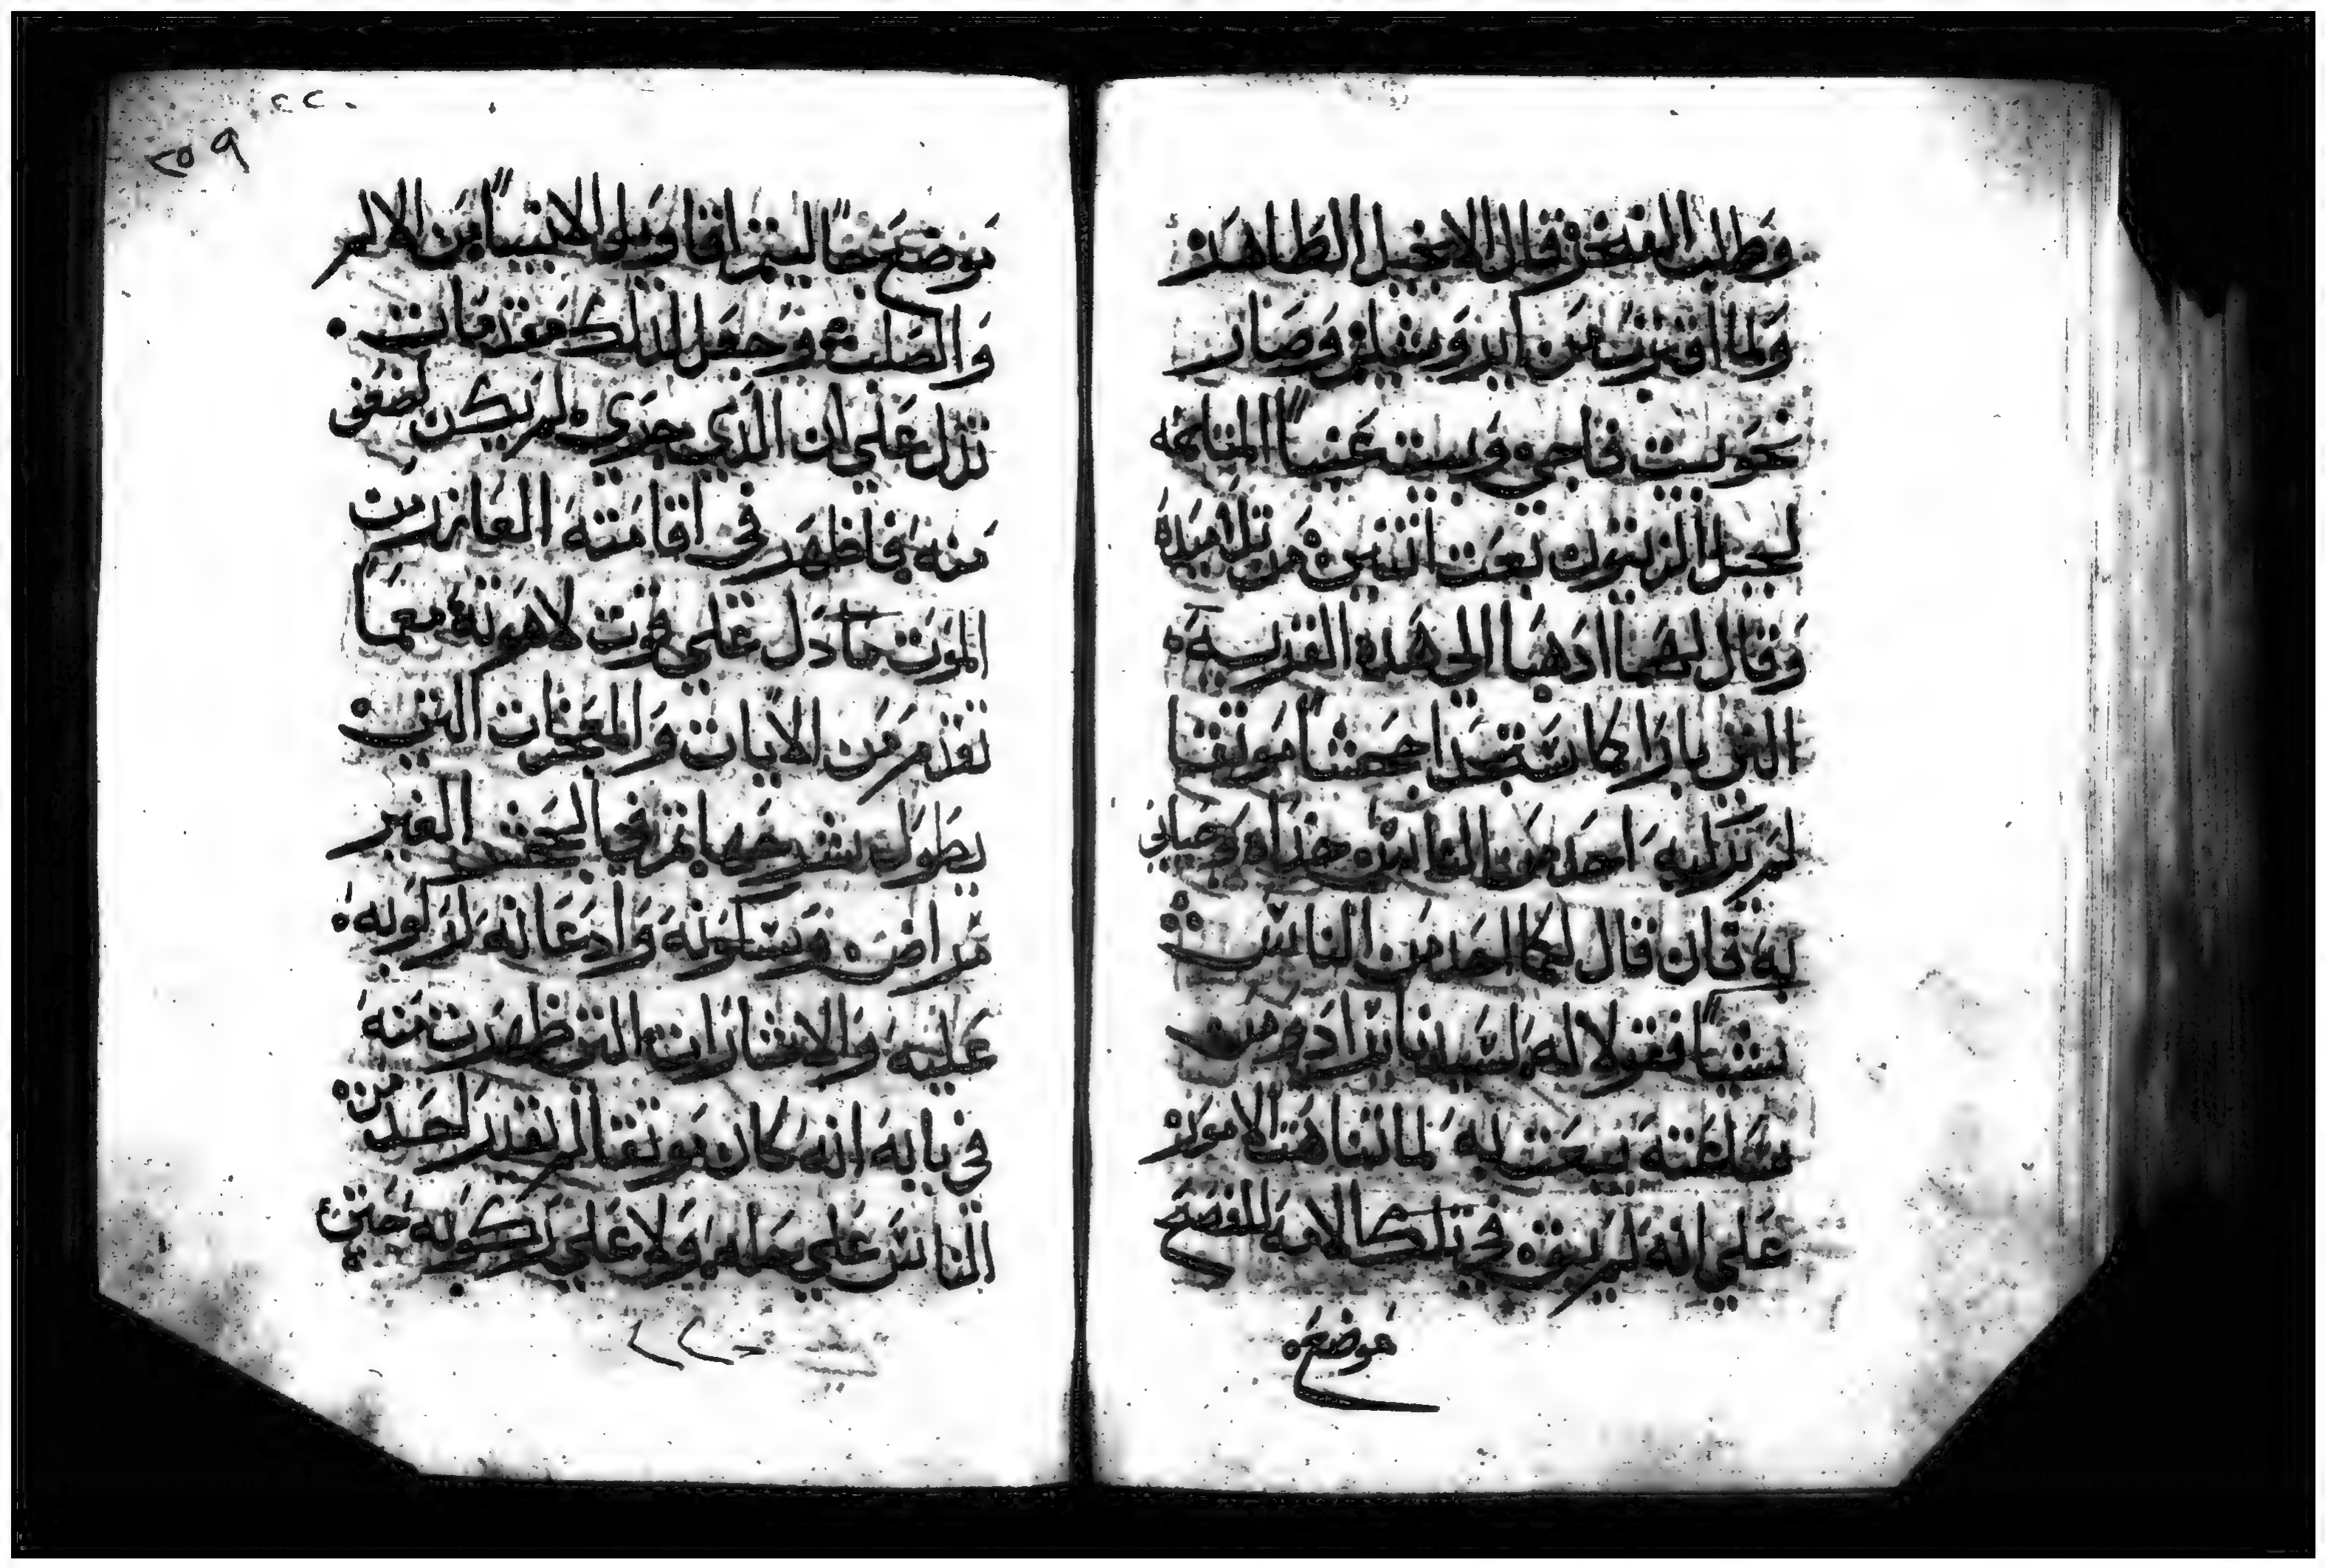 وطلب الفخر قال الانجيل الطاهر
ولما اقترب من ايروشليم وصار
نحو بيت فاجي وبيت عنيا المتاخمه
لجبل الزيتون بعث اثنين من تلاميذه
وقال لهما ادهبا الي هده القريه
التي بازاكما ستجدا جحشا موثقا
لم يركبه احد من الناس حلاه وجياني
به فان قال لكما احد من الناس
شيا فقولا له لسيدنا يراد ومن
ساعته يبعث به لما تناهت الامور
علي انه لم يبق في تلك الامه للفصح
موضعه
موضع جا ليتم اقاويل الانبيا من الالم
والصلب وجعل لدلك مقدمات
تدل علي ان الذي جري لم يكن لضعف
منه فاظهر في اقامته العازر من
الموت مما دل علي قوت لاهوته معما
تقدم من الايات والمعجزات التي
يطول شرحها ثم في الجحش الغير
مراض وسكونه وادعانه لركوبه
عليه والاشارات التي ظهرت منه
في بابه انه كان موثقا لم يقدر احد من
الناس علي حله ولا علي ركوبه حتي